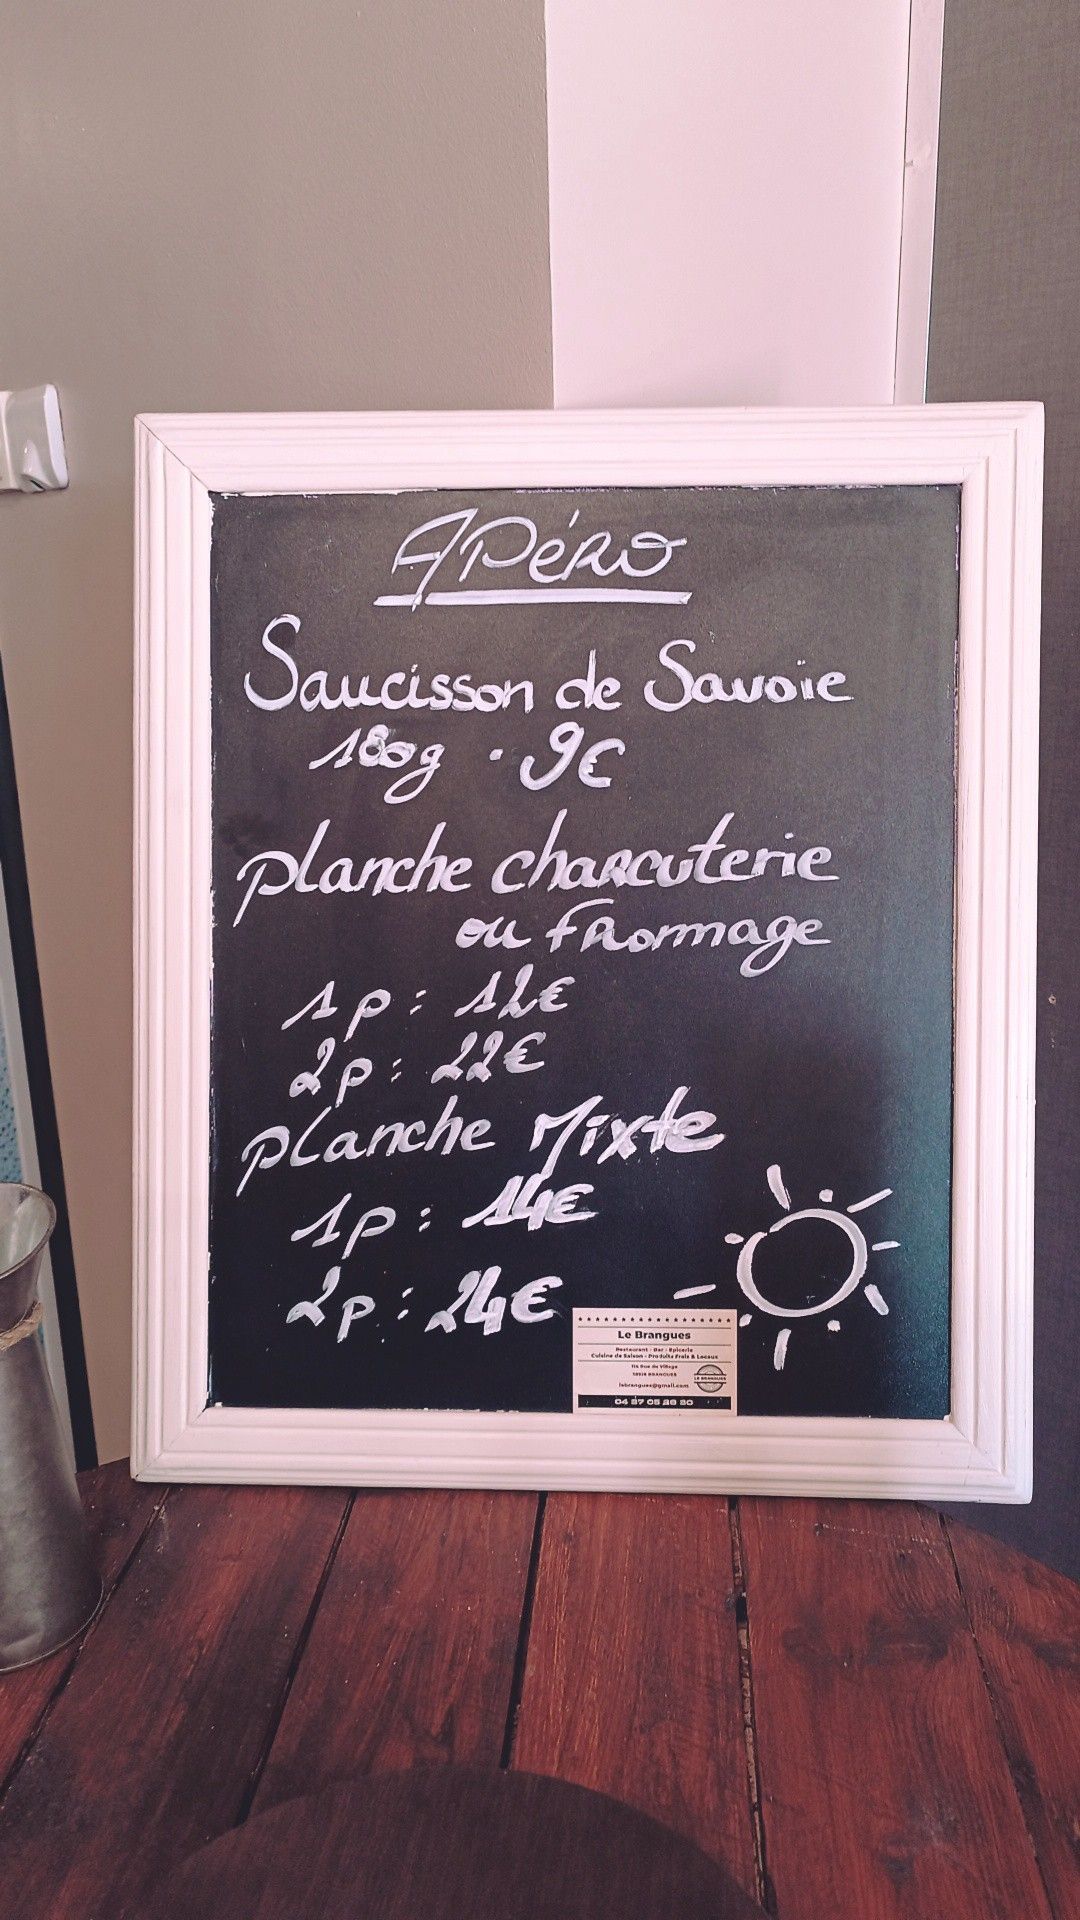 APéRO
Saucisson de Savoie
180g • 9€
planche charcuterie
ou fromage
1p : 12€
2p : 22€
planche Mixte
1p : 14€
2p : 24€
Le Brangues
Restaurant - Bar - Epicerie
Cuisine de Saison - Produits Frais & Locaux
Rue du Village
BRANGUES
lebrangues@gmail.com
LE BRANGUES